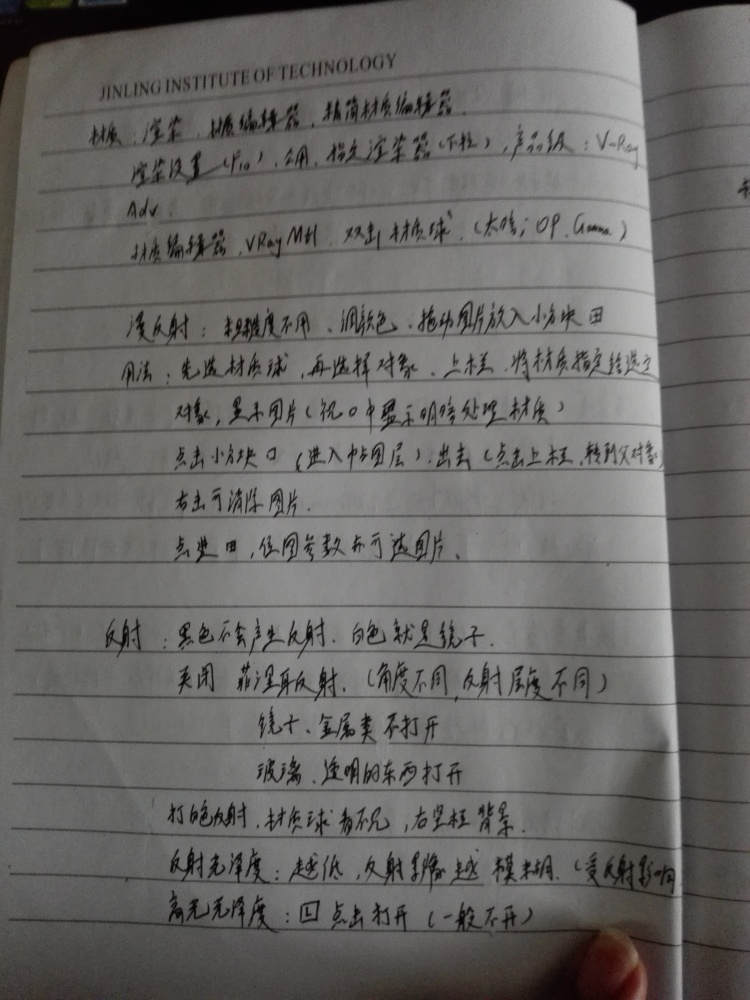 JINLING INSTITUTE OF TECHNOLOGY
材质：渲染、材质编辑器、精简材质编辑器.
渲染设置(F10)、公用、指定渲染器(下拉)，产品级：V-Ray
Adv.
材质编辑器、VRayMtl 双击材质球、(太暗; OP. Gamma.)
漫反射：粗糙度不用、调颜色、拖动图片放入小方块田
用法：先选材质球，再选择对象、上栏、将材质指定给选定
对象，显示图片(视口中显示明暗处理材质)
点击小方块口 (进入帖图层)、出去(点击上栏、转到父对象)
右击可清除图片.
点进田，位图参数亦可选图片、
反射：黑色不会产生反射、白色就是镜子.
关闭 菲涅耳反射.(角度不同,反射层度不同)
镜子、金属类不打开
玻璃、透明的东西打开
打白色反射，材质球看不见，右竖栏背景.
反射光泽度：越低，反射影像越模糊.(受反射影响
高光光泽度：回点击打开(一般不开)